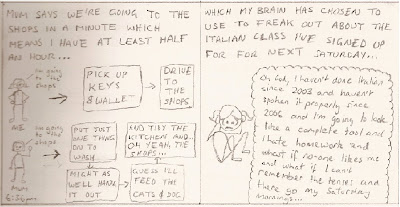 MUM SAYS WE'RE GOING TO THE
SHOPS IN A MINUTE WHICH
MEANS I HAVE AT LEAST HALF
AN HOUR...
I'm going to
the shops
ME
PICK UP
KEYS
& WALLET
DRIVE
TO THE
SHOPS
I'm going to
the shops
MUM
PUT JUST
ONE THING
ON TO
WASH
AND TIDY THE
KITCHEN AND...
OH YEAH, THE
SHOPS...
MIGHT AS
WELL HANG
IT OUT
GUESS I'LL
FEED THE
CATS & DOG
WHICH MY BRAIN HAS CHOSEN TO
USE TO FREAK OUT ABOUT THE
ITALIAN CLASS I'VE SIGNED UP
FOR FOR NEXT SATURDAY...
Oh God, I haven't done Italian
since 2003 and haven't
spoken it properly since
2006 and I'm going to look
like a complete tool and
I hate housework and
what if no-one likes me
and what if I can't
remember the tenses and
there go my Saturday
mornings...